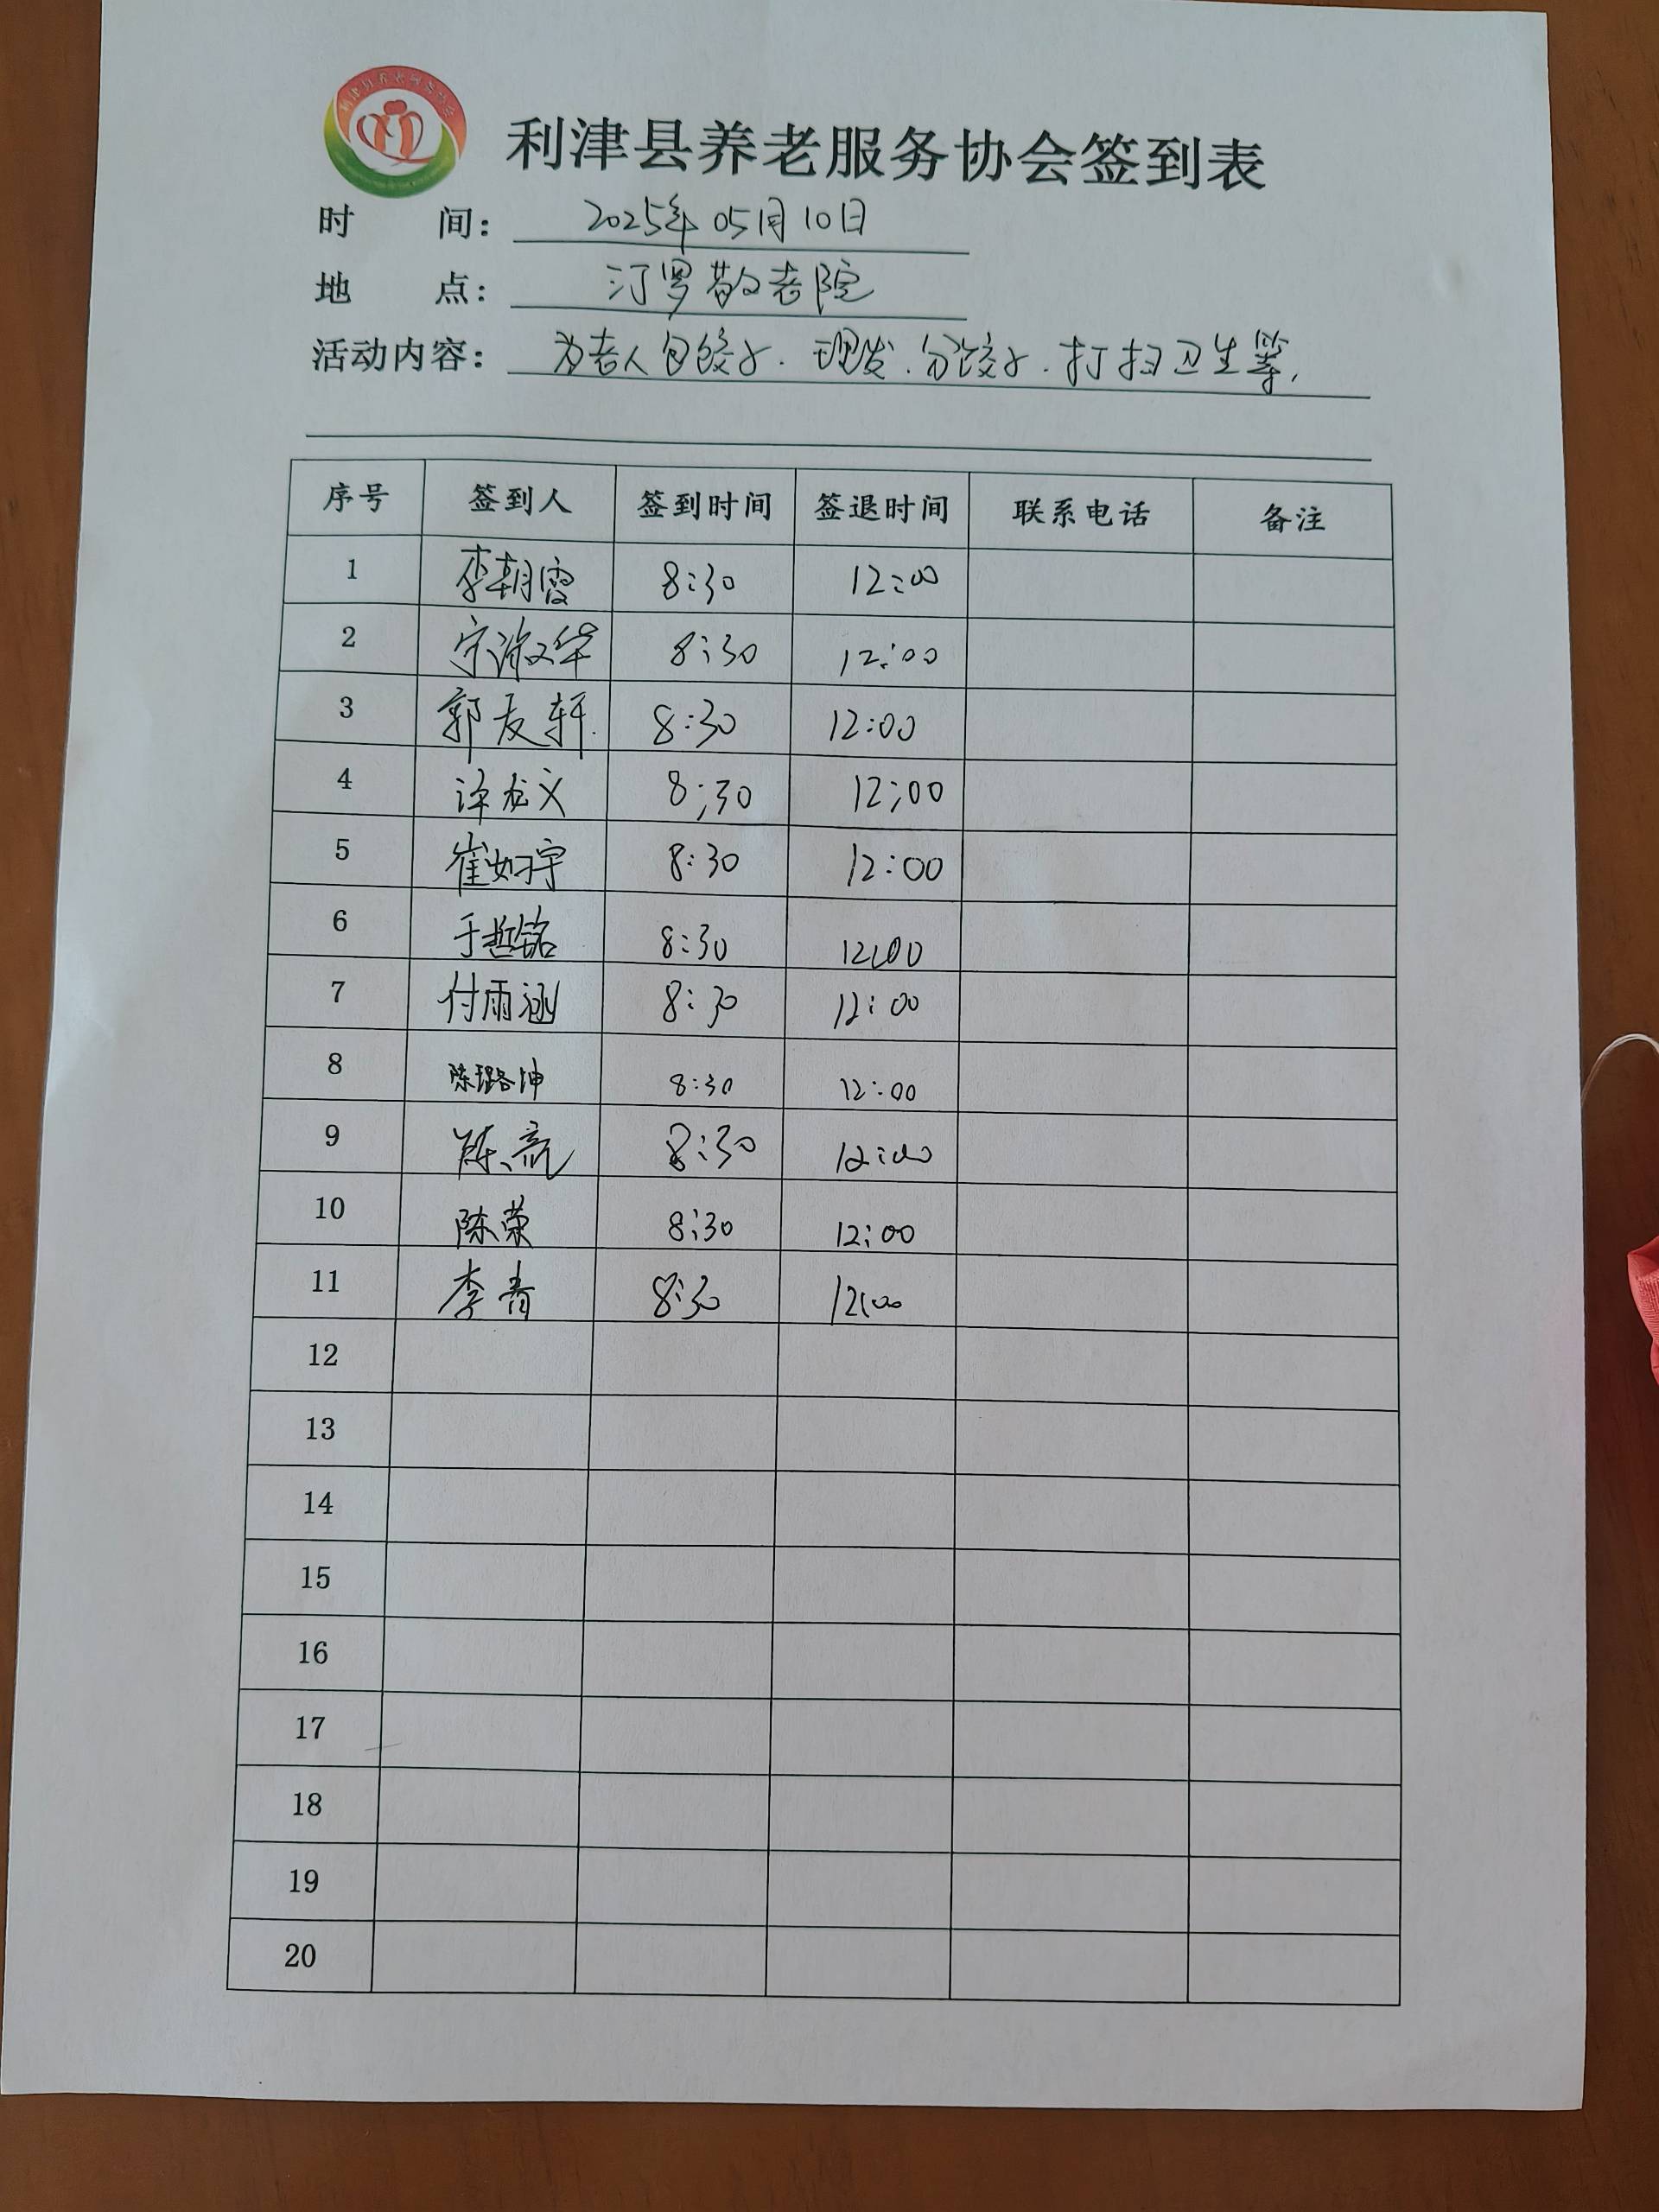 利津县养老服务协会签到表
时 间: 2025年05月10日
地 点: 汀罗敬老院
活动内容: 为老人包饺子.理发.分饺子.打扫卫生等,
序号 签到人 签到时间 签退时间 联系电话 备注
1 李朝霞 8:30 12:00
2 宋淑华 8:30 12:00
3 郭友轩 8:30 12:00
4 8:30 12:00
5 崔如宇 8:30 12:00
6 于哲铭 8:30 12:00
7 付雨涵 8:30 12:00
8 陈璐坤 8:30 12:00
9 陈亮 8:30 12:00
10 陈荣 8:30 12:00
11 李青 8:30 12:00
12
13
14
15
16
17
18
19
20